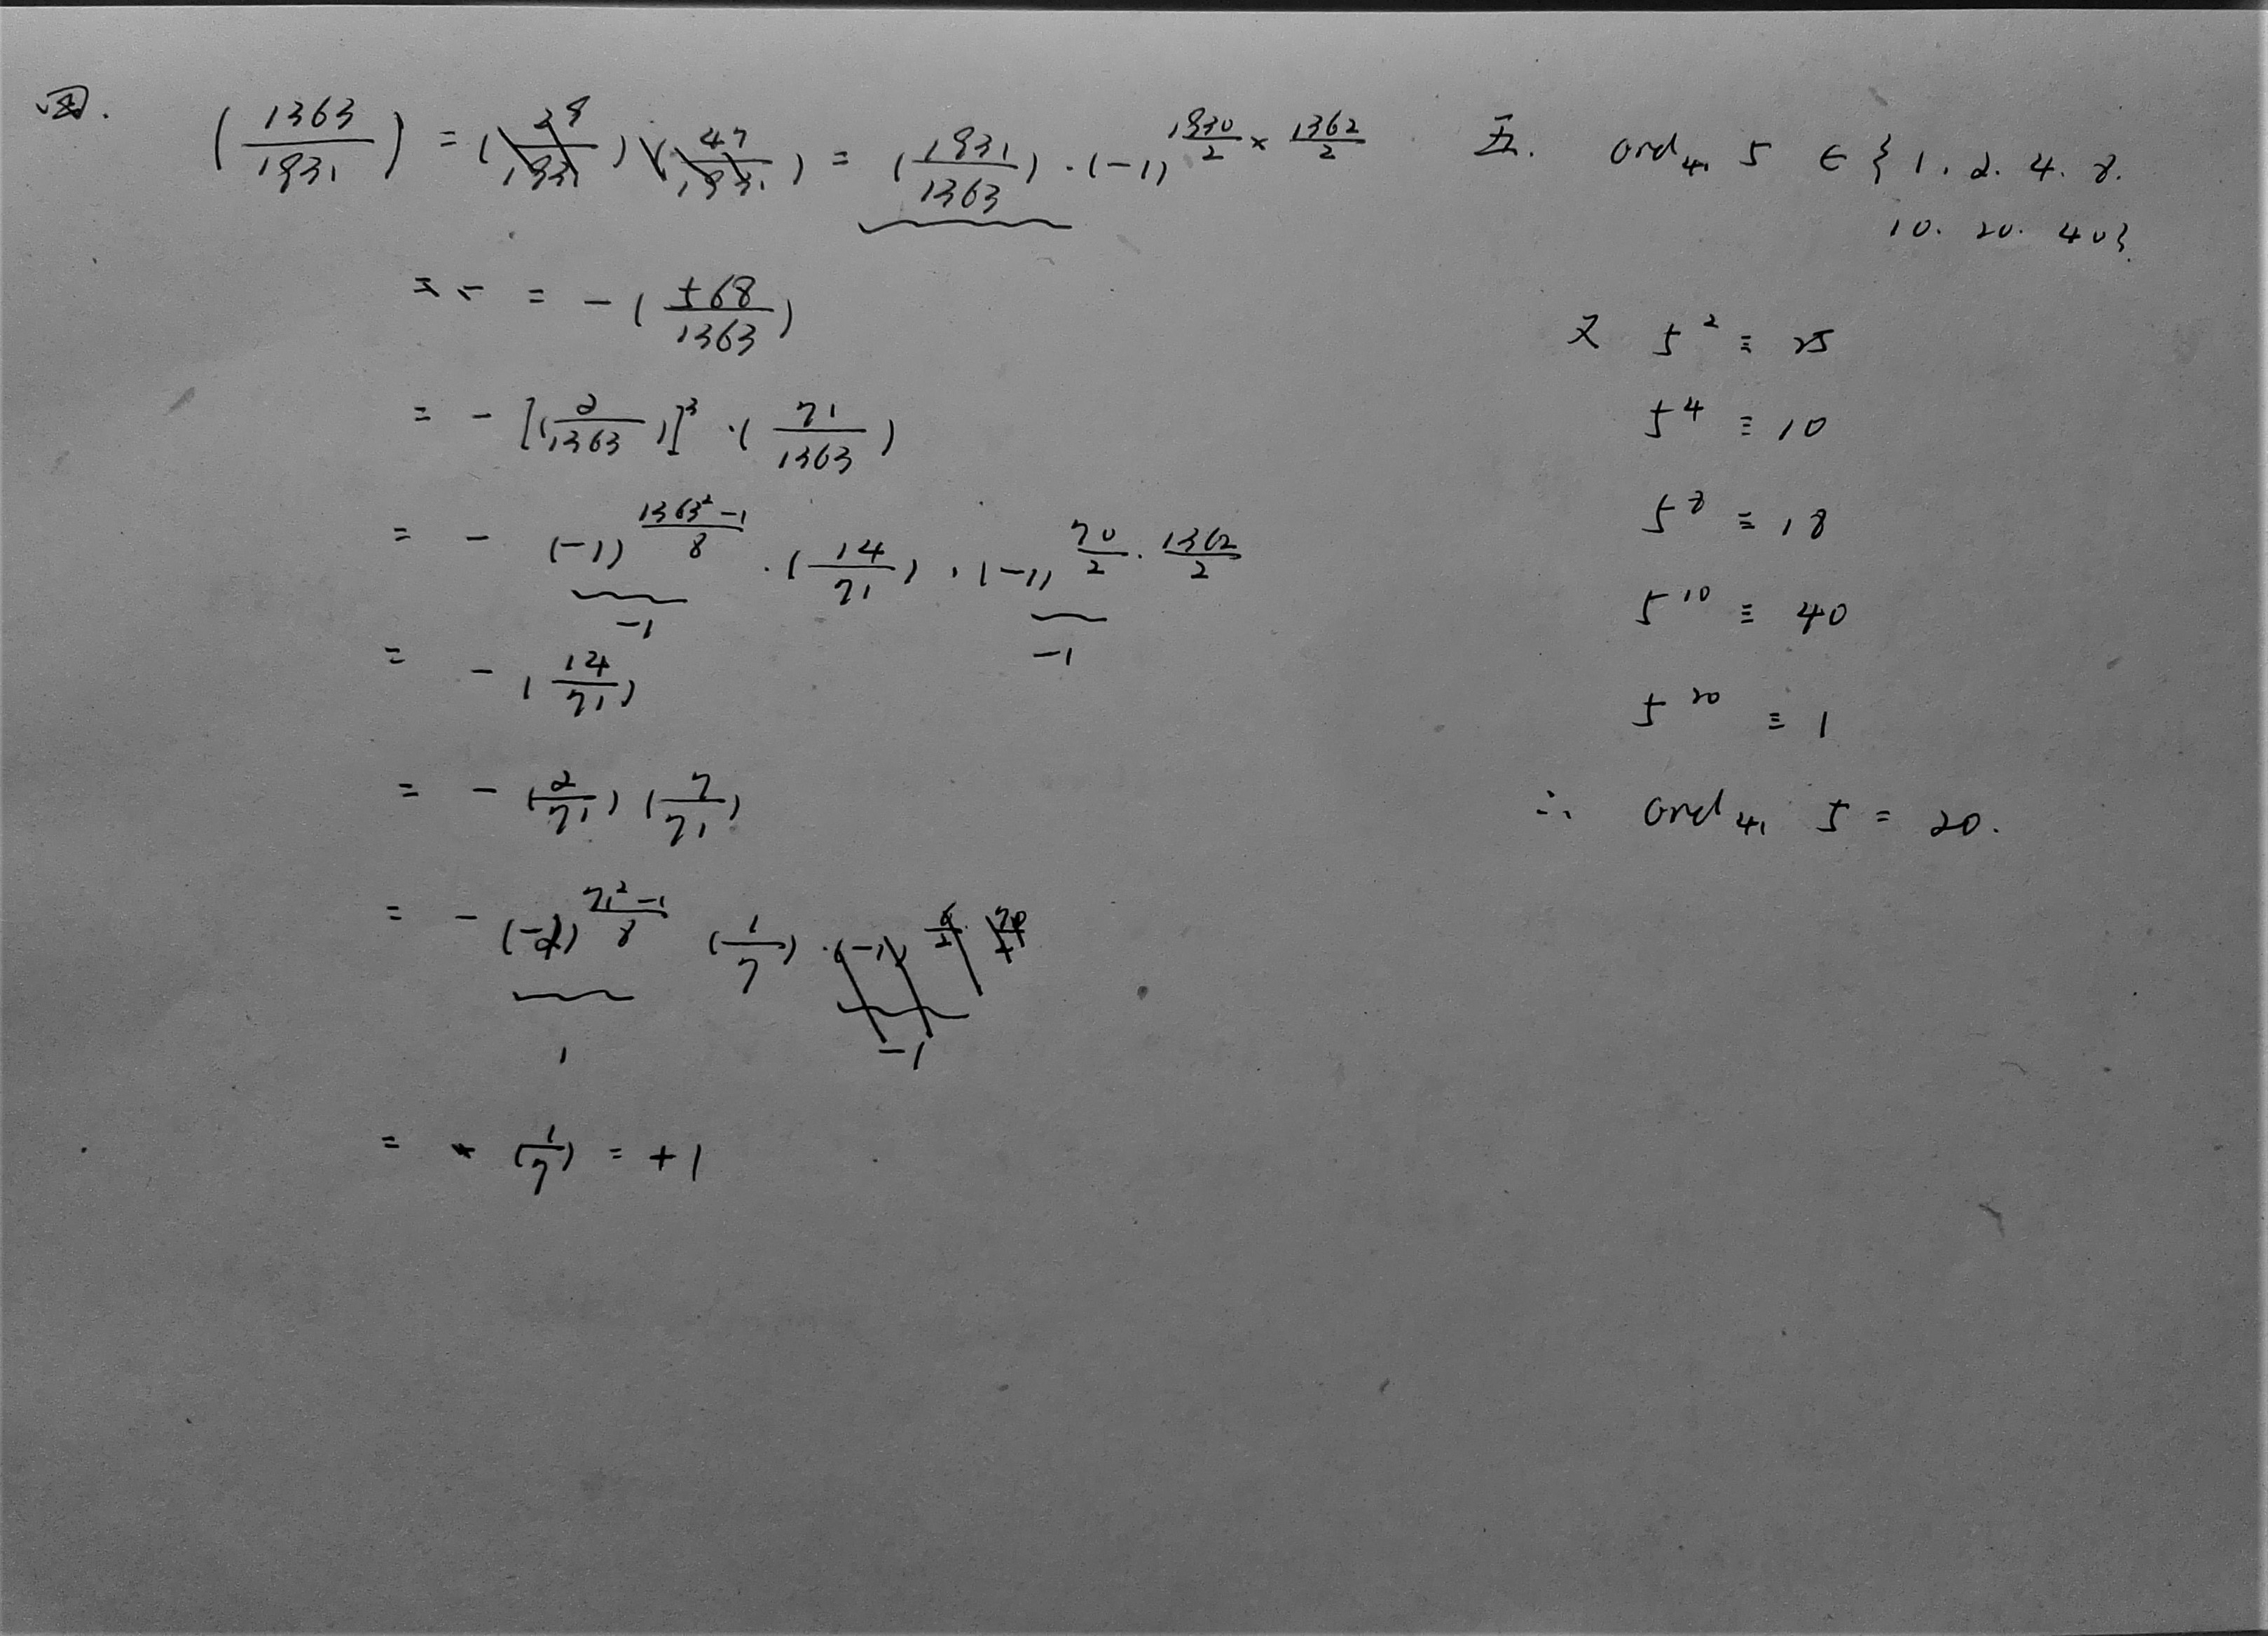 四. (1363/1931) = (29/1931)(47/1931) = (1931/1363)·(-1)^{1930/2 × 1362/2}
= -(568/1363)
= -[(2/1363)]^3·(71/1363)
= -(-1)^{(1363^2-1)/8}·(14/71)·(-1)^{70/2·1362/2}
-1 -1
= -(14/71)
= -(2/71)(7/71)
= -(-1)^{(71^2-1)/8} (1/7)·(-1)
1 -1
= (1/7) = +1
五. ord_41 5 ∈ {1. 2. 4. 8.
10. 20. 40}
又 5^2 ≡ 25
5^4 ≡ 10
5^8 ≡ 18
5^10 ≡ 40
5^20 ≡ 1
∴ ord_41 5 = 20.